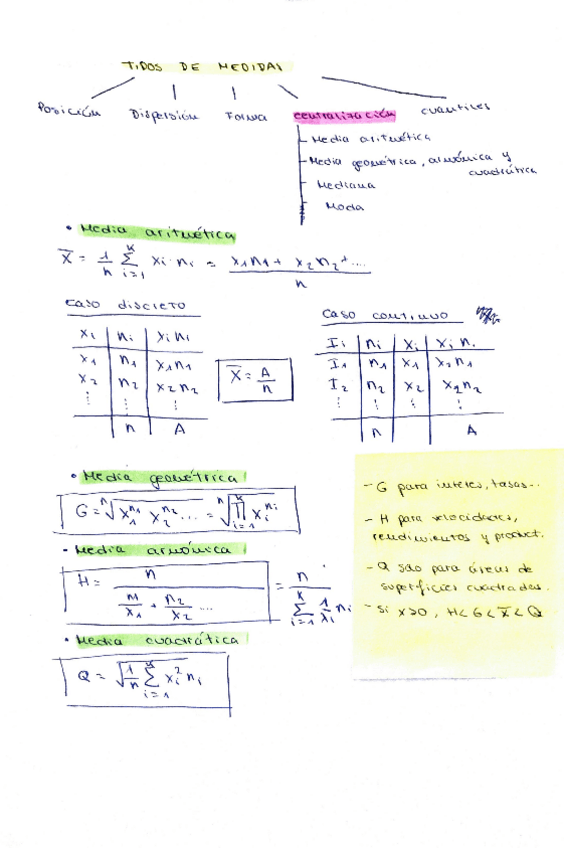 TIPOS DE MEDIDAS
Posición Dispersión Forma centralización cuantiles
Media aritmética
Media geométrica, armónica y
cuadrática
Mediana
Moda
• Media aritmética
X̄ = 1/n ∑_{i=1}^{k} xi·ni = (x1n1 + x2n2 + ....)/n
caso discreto
xi | ni | xi ni
x1 | n1 | x1n1
x2 | n2 | x2n2
⋮ ⋮ ⋮
n | A
X̄ = A/n
caso continuo
Ii | ni | xi | xi ni
I1 | n1 | x1 | x1n1
I2 | n2 | x2 | x2n2
⋮ ⋮ ⋮ ⋮
n | A
• Media geométrica
G = ⁿ√(x1^{n1} x2^{n2} ...) = ⁿ√(∏_{i=1}^{k} xi^{ni})
• Media armónica
H = n/(n1/x1 + n2/x2 ....) = n/(∑_{i=1}^{k} 1/xi ni)
• Media cuadrática
Q = √(1/n ∑_{i=1}^{k} xi² ni)
- G para interes, tasas...
- H para velocidades,
rendimientos y product.
- Q sao para áreas de
superficies cuadradas.
- si x>0, H<G<X̄<Q